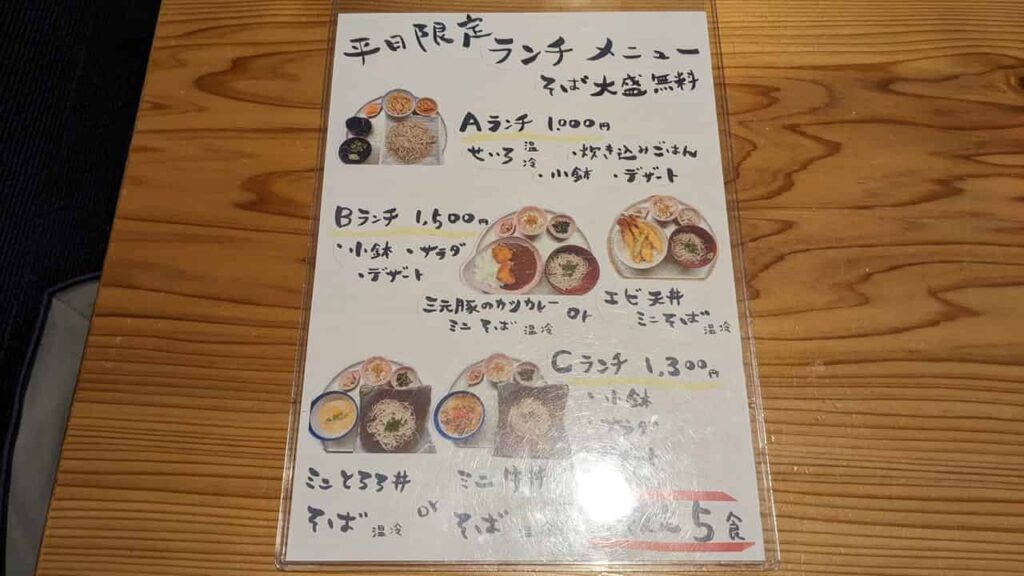 平日限定 ランチ メニュー
そば大盛無料
Aランチ 1,000円
せいろ 温 冷 ・炊き込みごはん
・小鉢 ・デザート
Bランチ 1,500円
・小鉢 ・サラダ
・デザート
三元豚のカツカレー
ミニそば 温冷
or
エビ天丼
ミニそば 温冷
Cランチ 1,300円
・小鉢
・サラダ
ミニとろろ丼
そば 温冷
or
ミニ牛丼
そば
5食